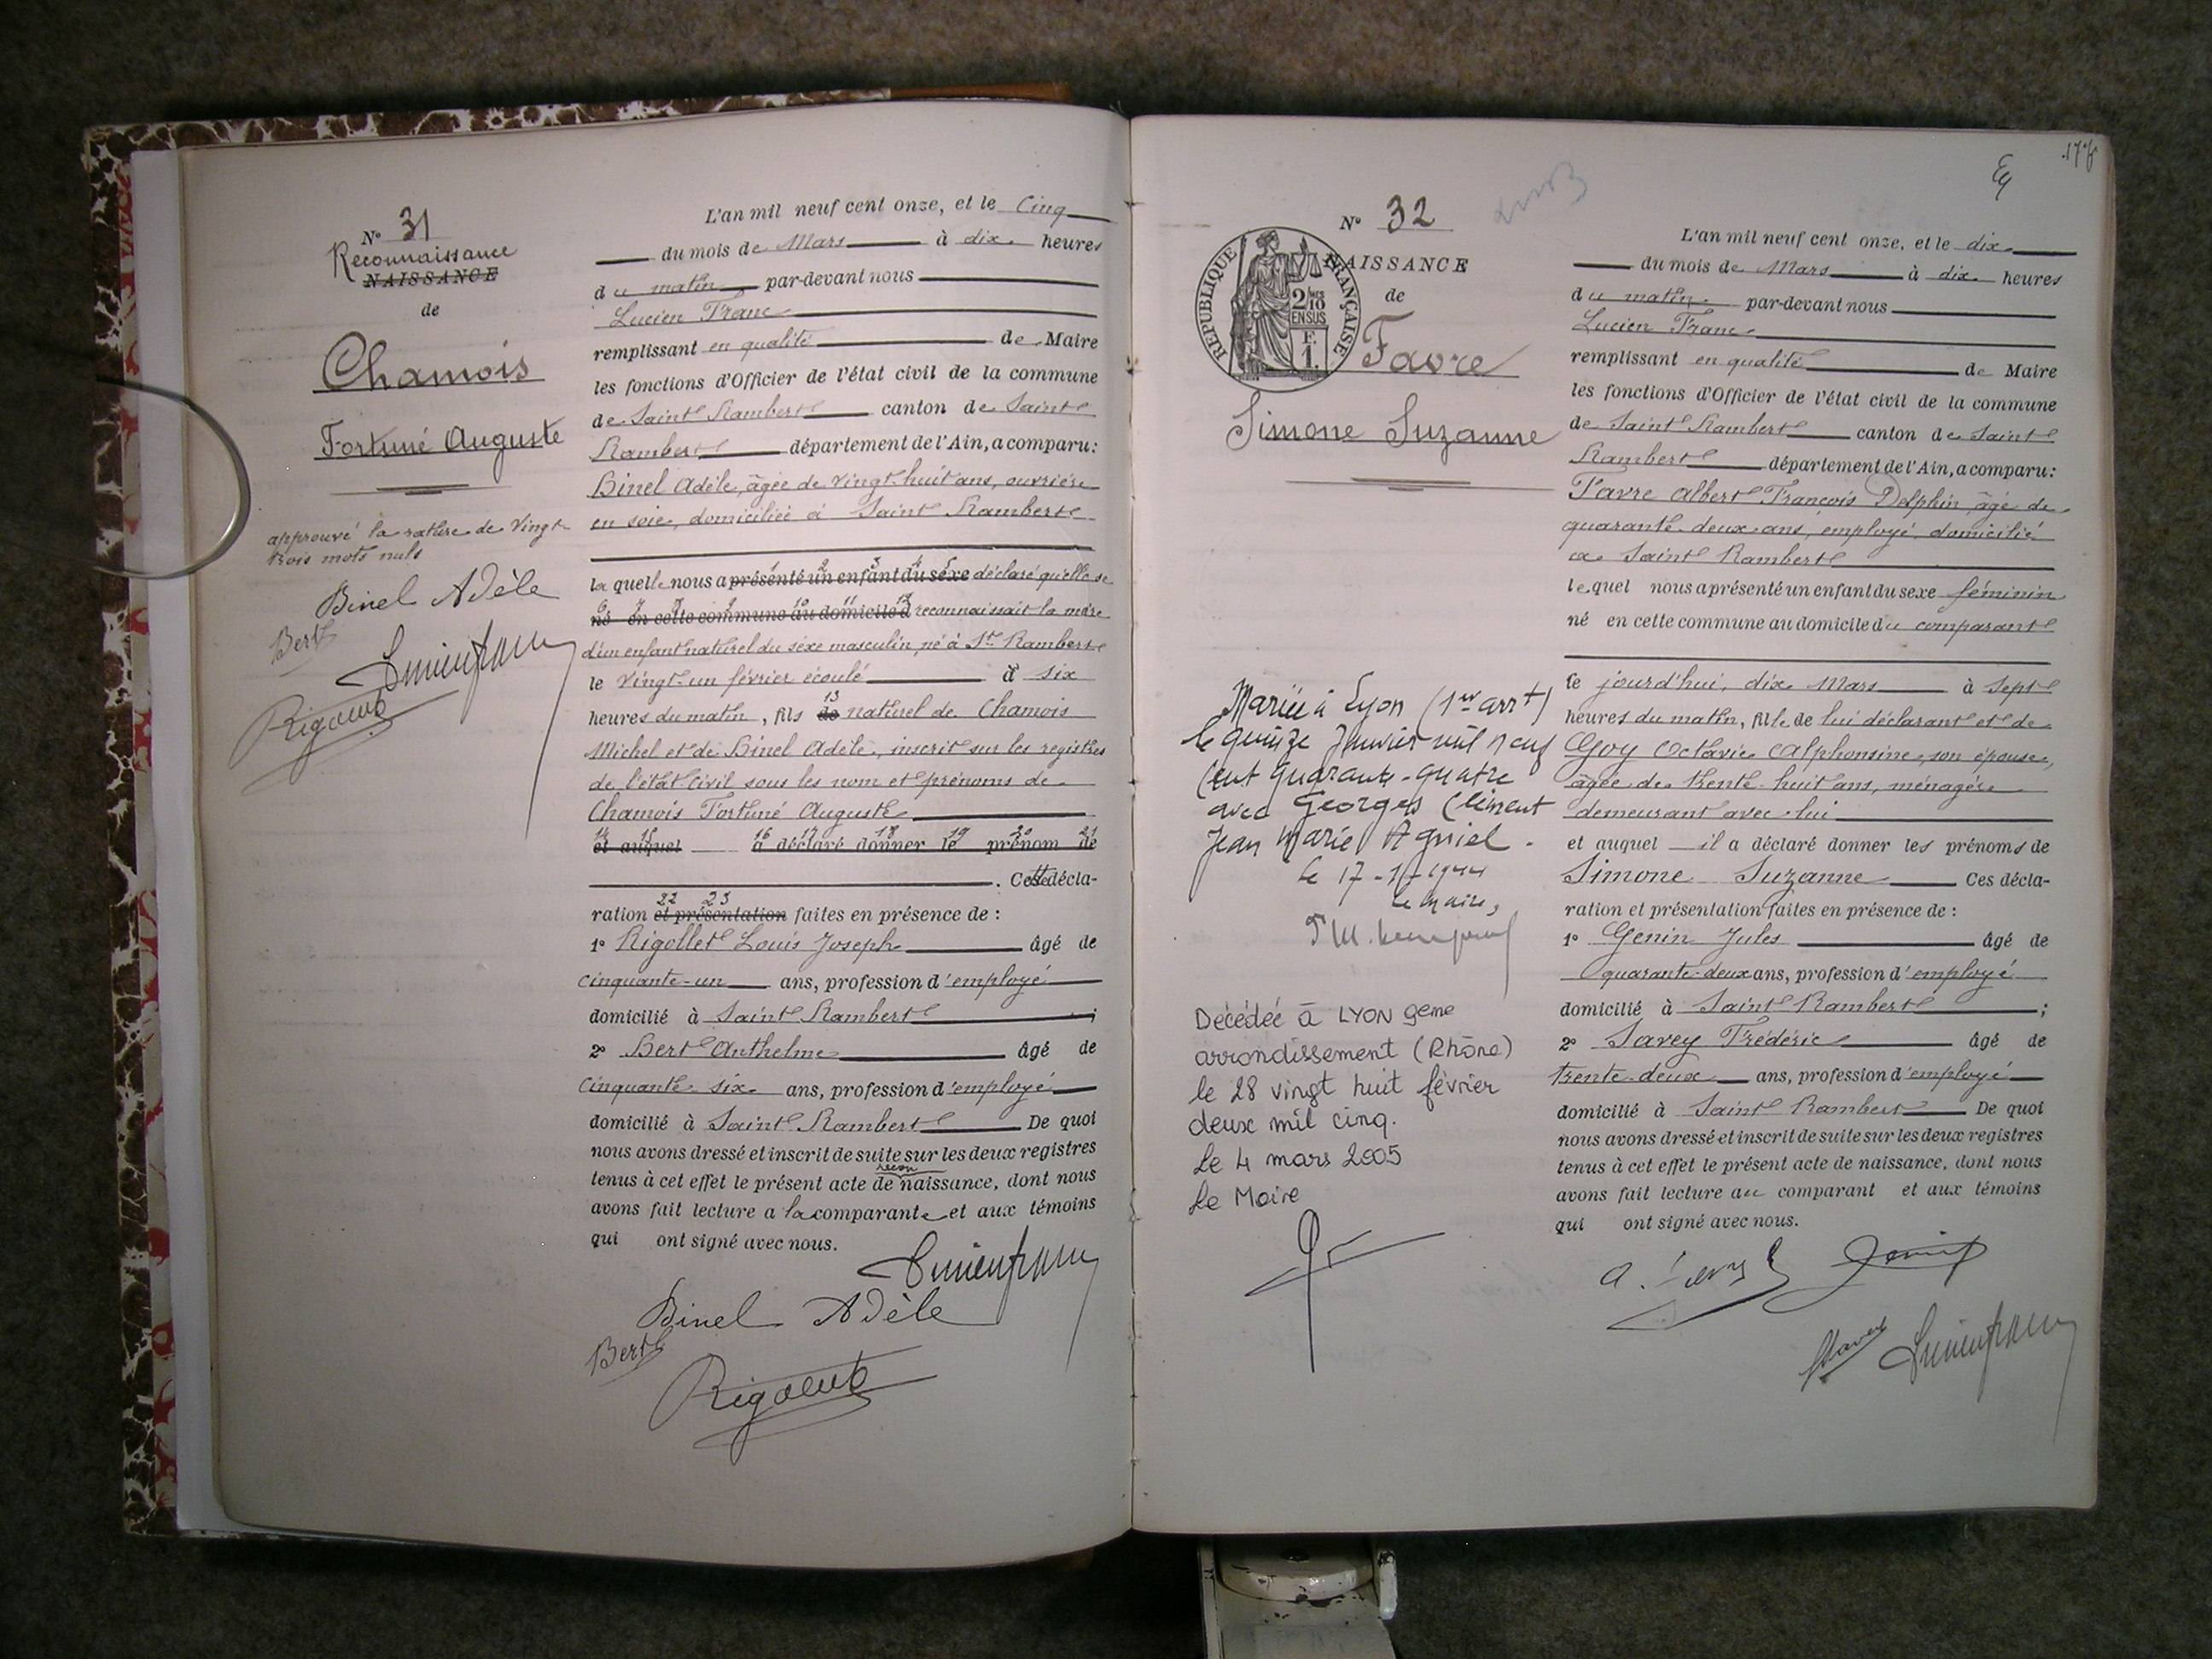 N° 31
Reconnaissance
NAISSANCE
de
Chamois
Fortuné Auguste
approuvé la rature de vingt
trois mots nuls
Binel Adèle
Bert
L'an mil neuf cent onze, et le cinq
du mois de Mars à dix heures
du matin par-devant nous
Lucien Franc
remplissant en qualité de Maire
les fonctions d'Officier de l'état civil de la commune
de Saint Rambert canton de Saint
Rambert département de l'Ain, a comparu:
Binel Adèle, âgée de vingt-huit ans, ouvrière
en soie, domiciliée à Saint Rambert
1 2 3 4 5
la quelle nous a présenté un enfant du sexe déclaré qu'elle se
6 7 8 9 10 11 12
né en cette commune au domicile d reconnaissait la mère
d'un enfant naturel du sexe masculin, né à St Rambert
le vingt-un février écoulé à six
13
heures du matin, fils de naturel de Chamois
Michel et de Binel Adèle, inscrit sur les registres
de l'état-civil sous les nom et prénoms de
Chamois Fortuné Auguste
14 15 16 17 18 19 20 21
et auquel a déclaré donner le prénom de
. Cette décla-
22 23
ration et présentation faites en présence de :
1° Rigollet Louis Joseph âgé de
cinquante-un ans, profession d'employé
domicilié à Saint Rambert ;
2° Bert Anthelme âgé de
cinquante-six ans, profession d'employé
domicilié à Saint Rambert De quoi
nous avons dressé et inscrit de suite sur les deux registres
recon
tenus à cet effet le présent acte de naissance, dont nous
avons fait lecture a la comparante et aux témoins
qui ont signé avec nous.
Binel Adèle
Bert
N° 32
NAISSANCE
de
REPUBLIQUE FRANÇAISE
2/10 MES
EN SUS
F.
1.
Favre
Simone Suzanne
Mariée à Lyon (1er arrt)
le quinze Janvier mil neuf
cent quarante-quatre
avec Georges Clément
Jean Marie Agniel.
le 17-1-1944
Le Maire,
Décédée à LYON 9eme
arrondissement (Rhône)
le 28 vingt huit février
deux mil cinq.
Le 4 mars 2005
Le Maire
L'an mil neuf cent onze, et le dix
du mois de Mars à dix heures
du matin par-devant nous
Lucien Franc
remplissant en qualité de Maire
les fonctions d'Officier de l'état civil de la commune
de Saint Rambert canton de Saint
Rambert département de l'Ain, a comparu:
Favre Albert François Delphin, âgé de
quarante-deux ans, employé, domicilié
à Saint Rambert
lequel nous a présenté un enfant du sexe féminin
né en cette commune au domicile du comparant
le jourd'hui, dix Mars à sept
heures du matin, fille de lui déclarant et de
Goy Octavie Alphonsine, son épouse,
âgée de trente-huit ans, ménagère
demeurant avec lui
et auquel il a déclaré donner les prénoms de
Simone Suzanne Ces décla-
ration et présentation faites en présence de :
1° Genin Jules âgé de
quarante-deux ans, profession d'employé
domicilié à Saint Rambert ;
2° Savey Frédéric âgé de
trente-deux ans, profession d'employé
domicilié à Saint Rambert De quoi
nous avons dressé et inscrit de suite sur les deux registres
tenus à cet effet le présent acte de naissance, dont nous
avons fait lecture au comparant et aux témoins
qui ont signé avec nous.